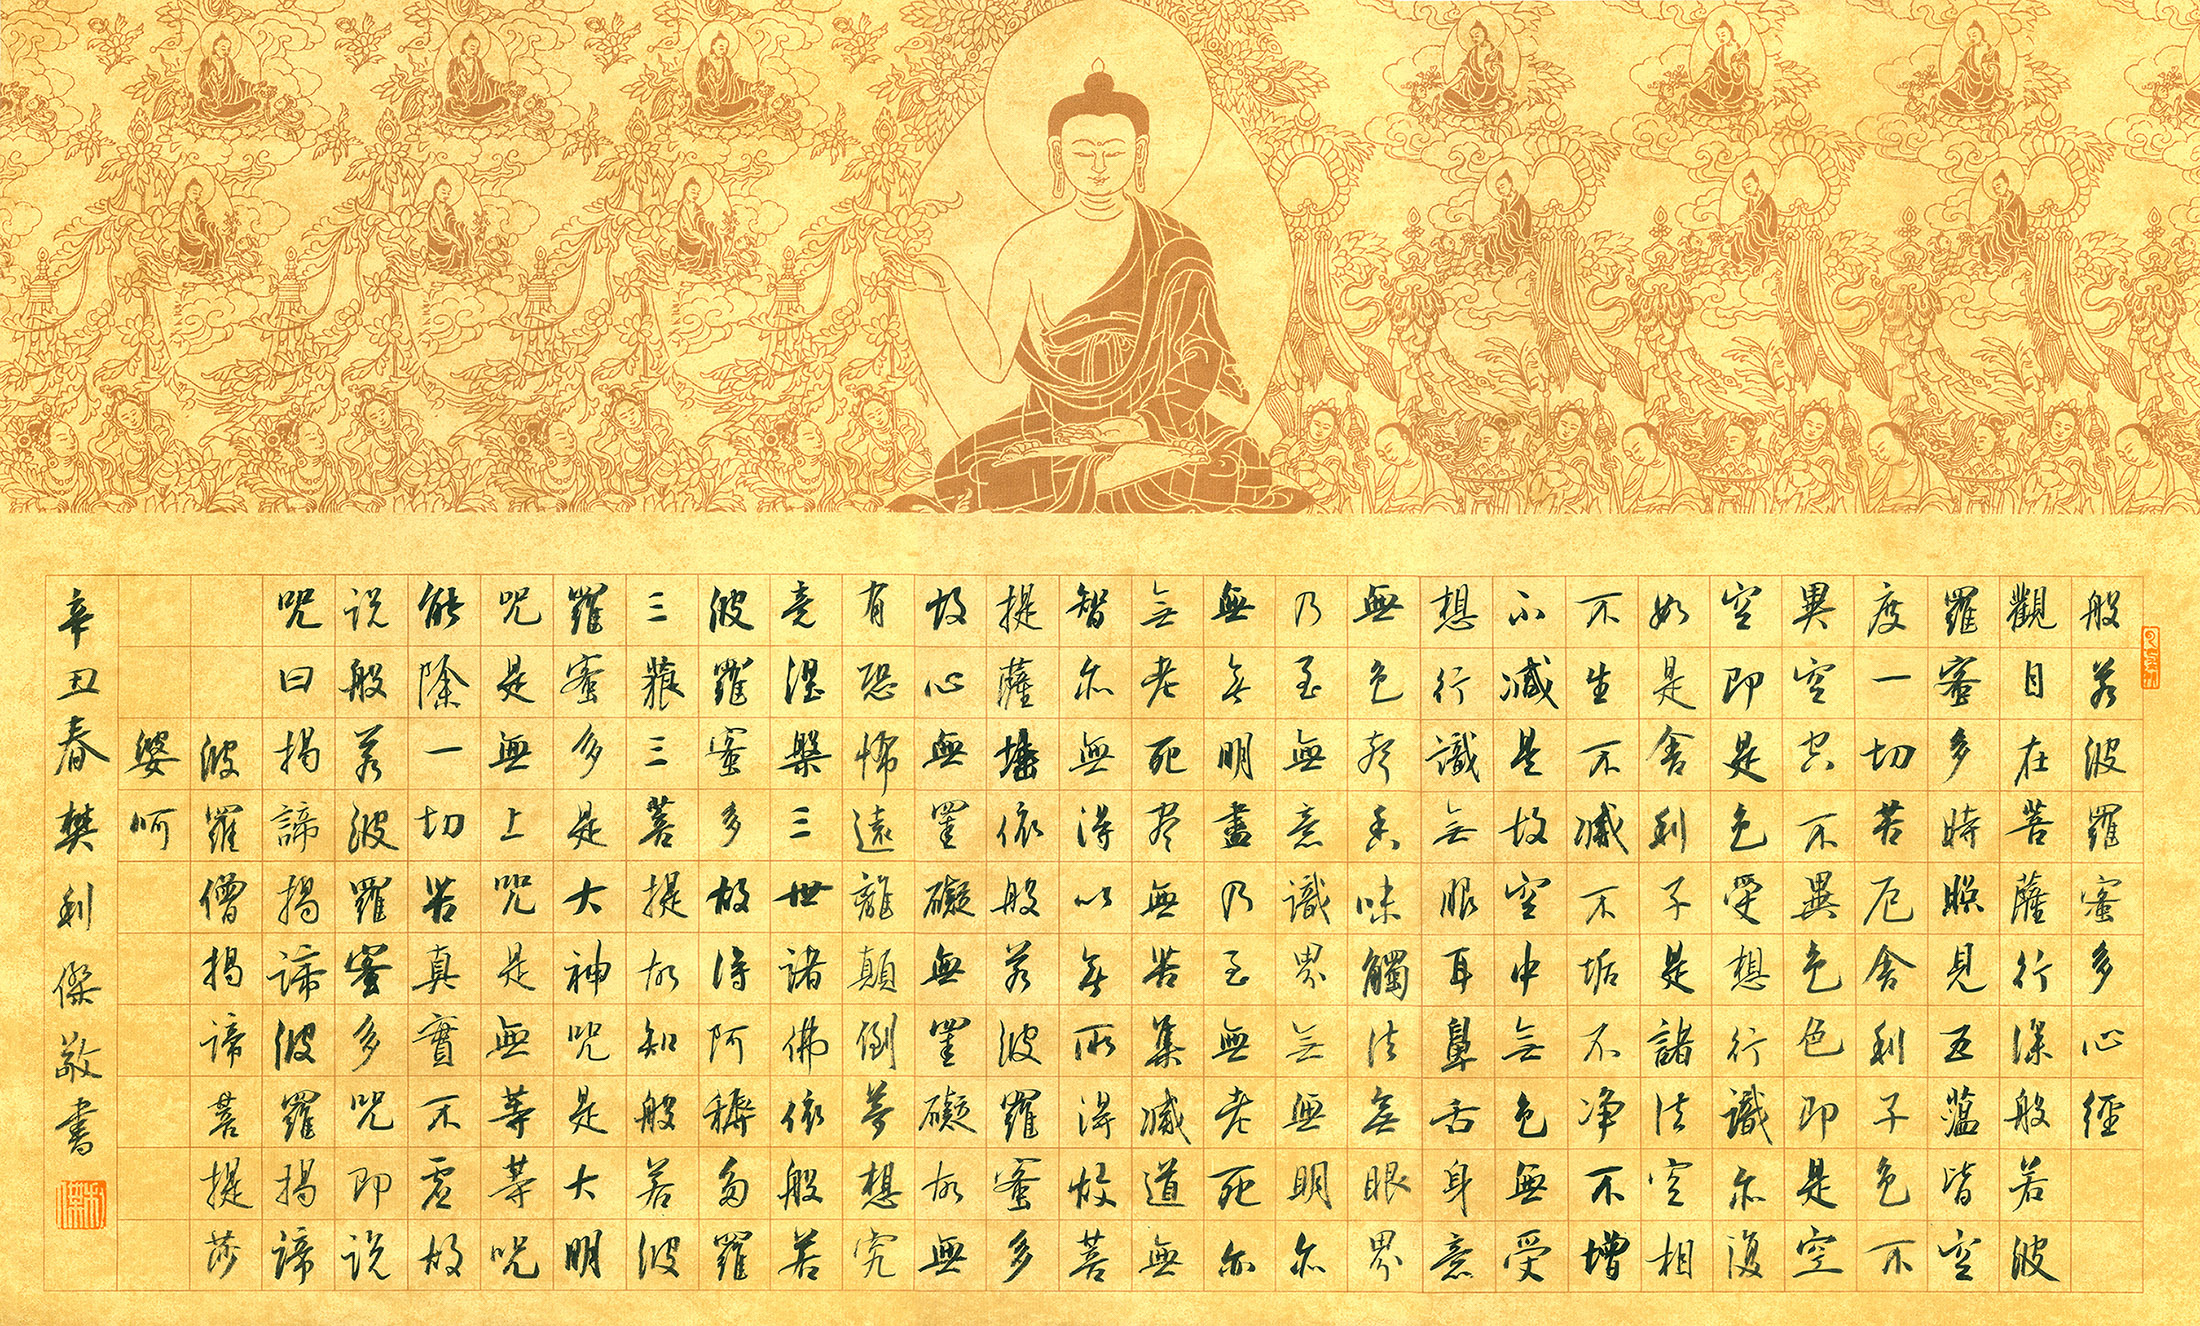 般若波羅蜜多心經
觀自在菩薩行深般若波
羅蜜多時照見五蘊皆空
度一切苦厄舍利子色不
異空空不異色色即是空
空即是色受想行識亦復
如是舍利子是諸法空相
不生不滅不垢不净不增
不減是故空中無色無受
想行識無眼耳鼻舌身意
無色聲香味觸法無眼界
乃至無意識界無無明亦
無無明盡乃至無老死亦
無老死尽無苦集滅道無
智亦無得以無所得故菩
提薩埵依般若波羅蜜多
故心無罣礙無罣礙故無
有恐怖遠離顛倒夢想究
竟涅槃三世諸佛依般若
波羅蜜多故得阿耨多羅
三藐三菩提故知般若波
羅蜜多是大神咒是大明
咒是無上咒是無等等咒
能除一切苦真實不虛故
说般若波羅蜜多咒即说
咒曰揭諦揭諦波羅揭諦
波羅僧揭諦菩提莎
婆呵
辛丑春樊利傑敬書